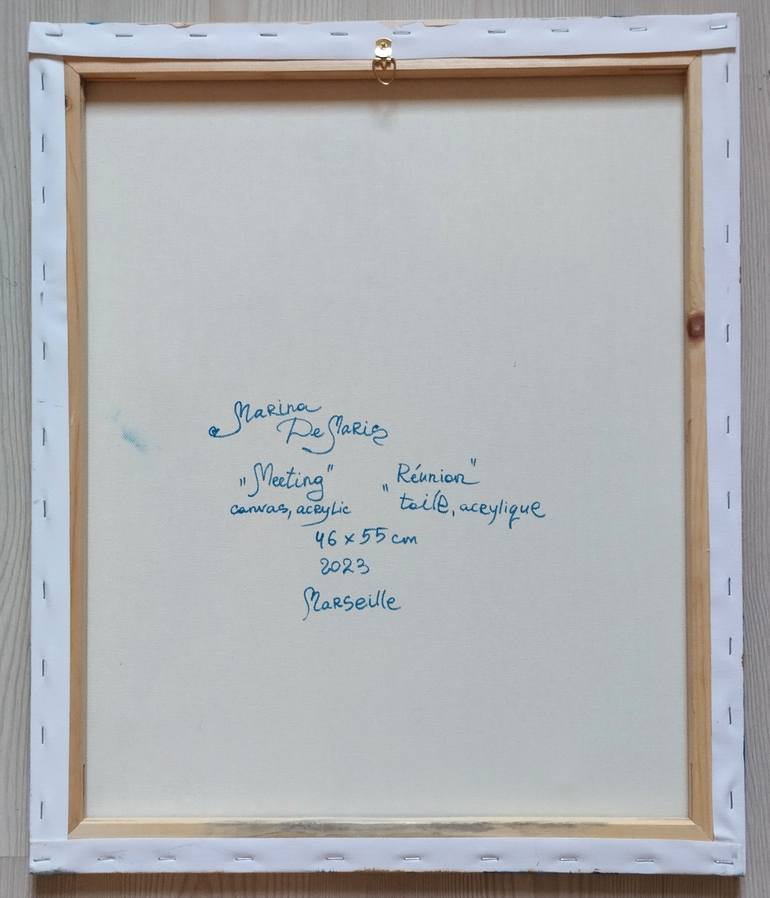 Marina
De Maris
„Meeting" „Réunion"
canvas, acrylic toile, acrylique
46 x 55 cm
2023
Marseille